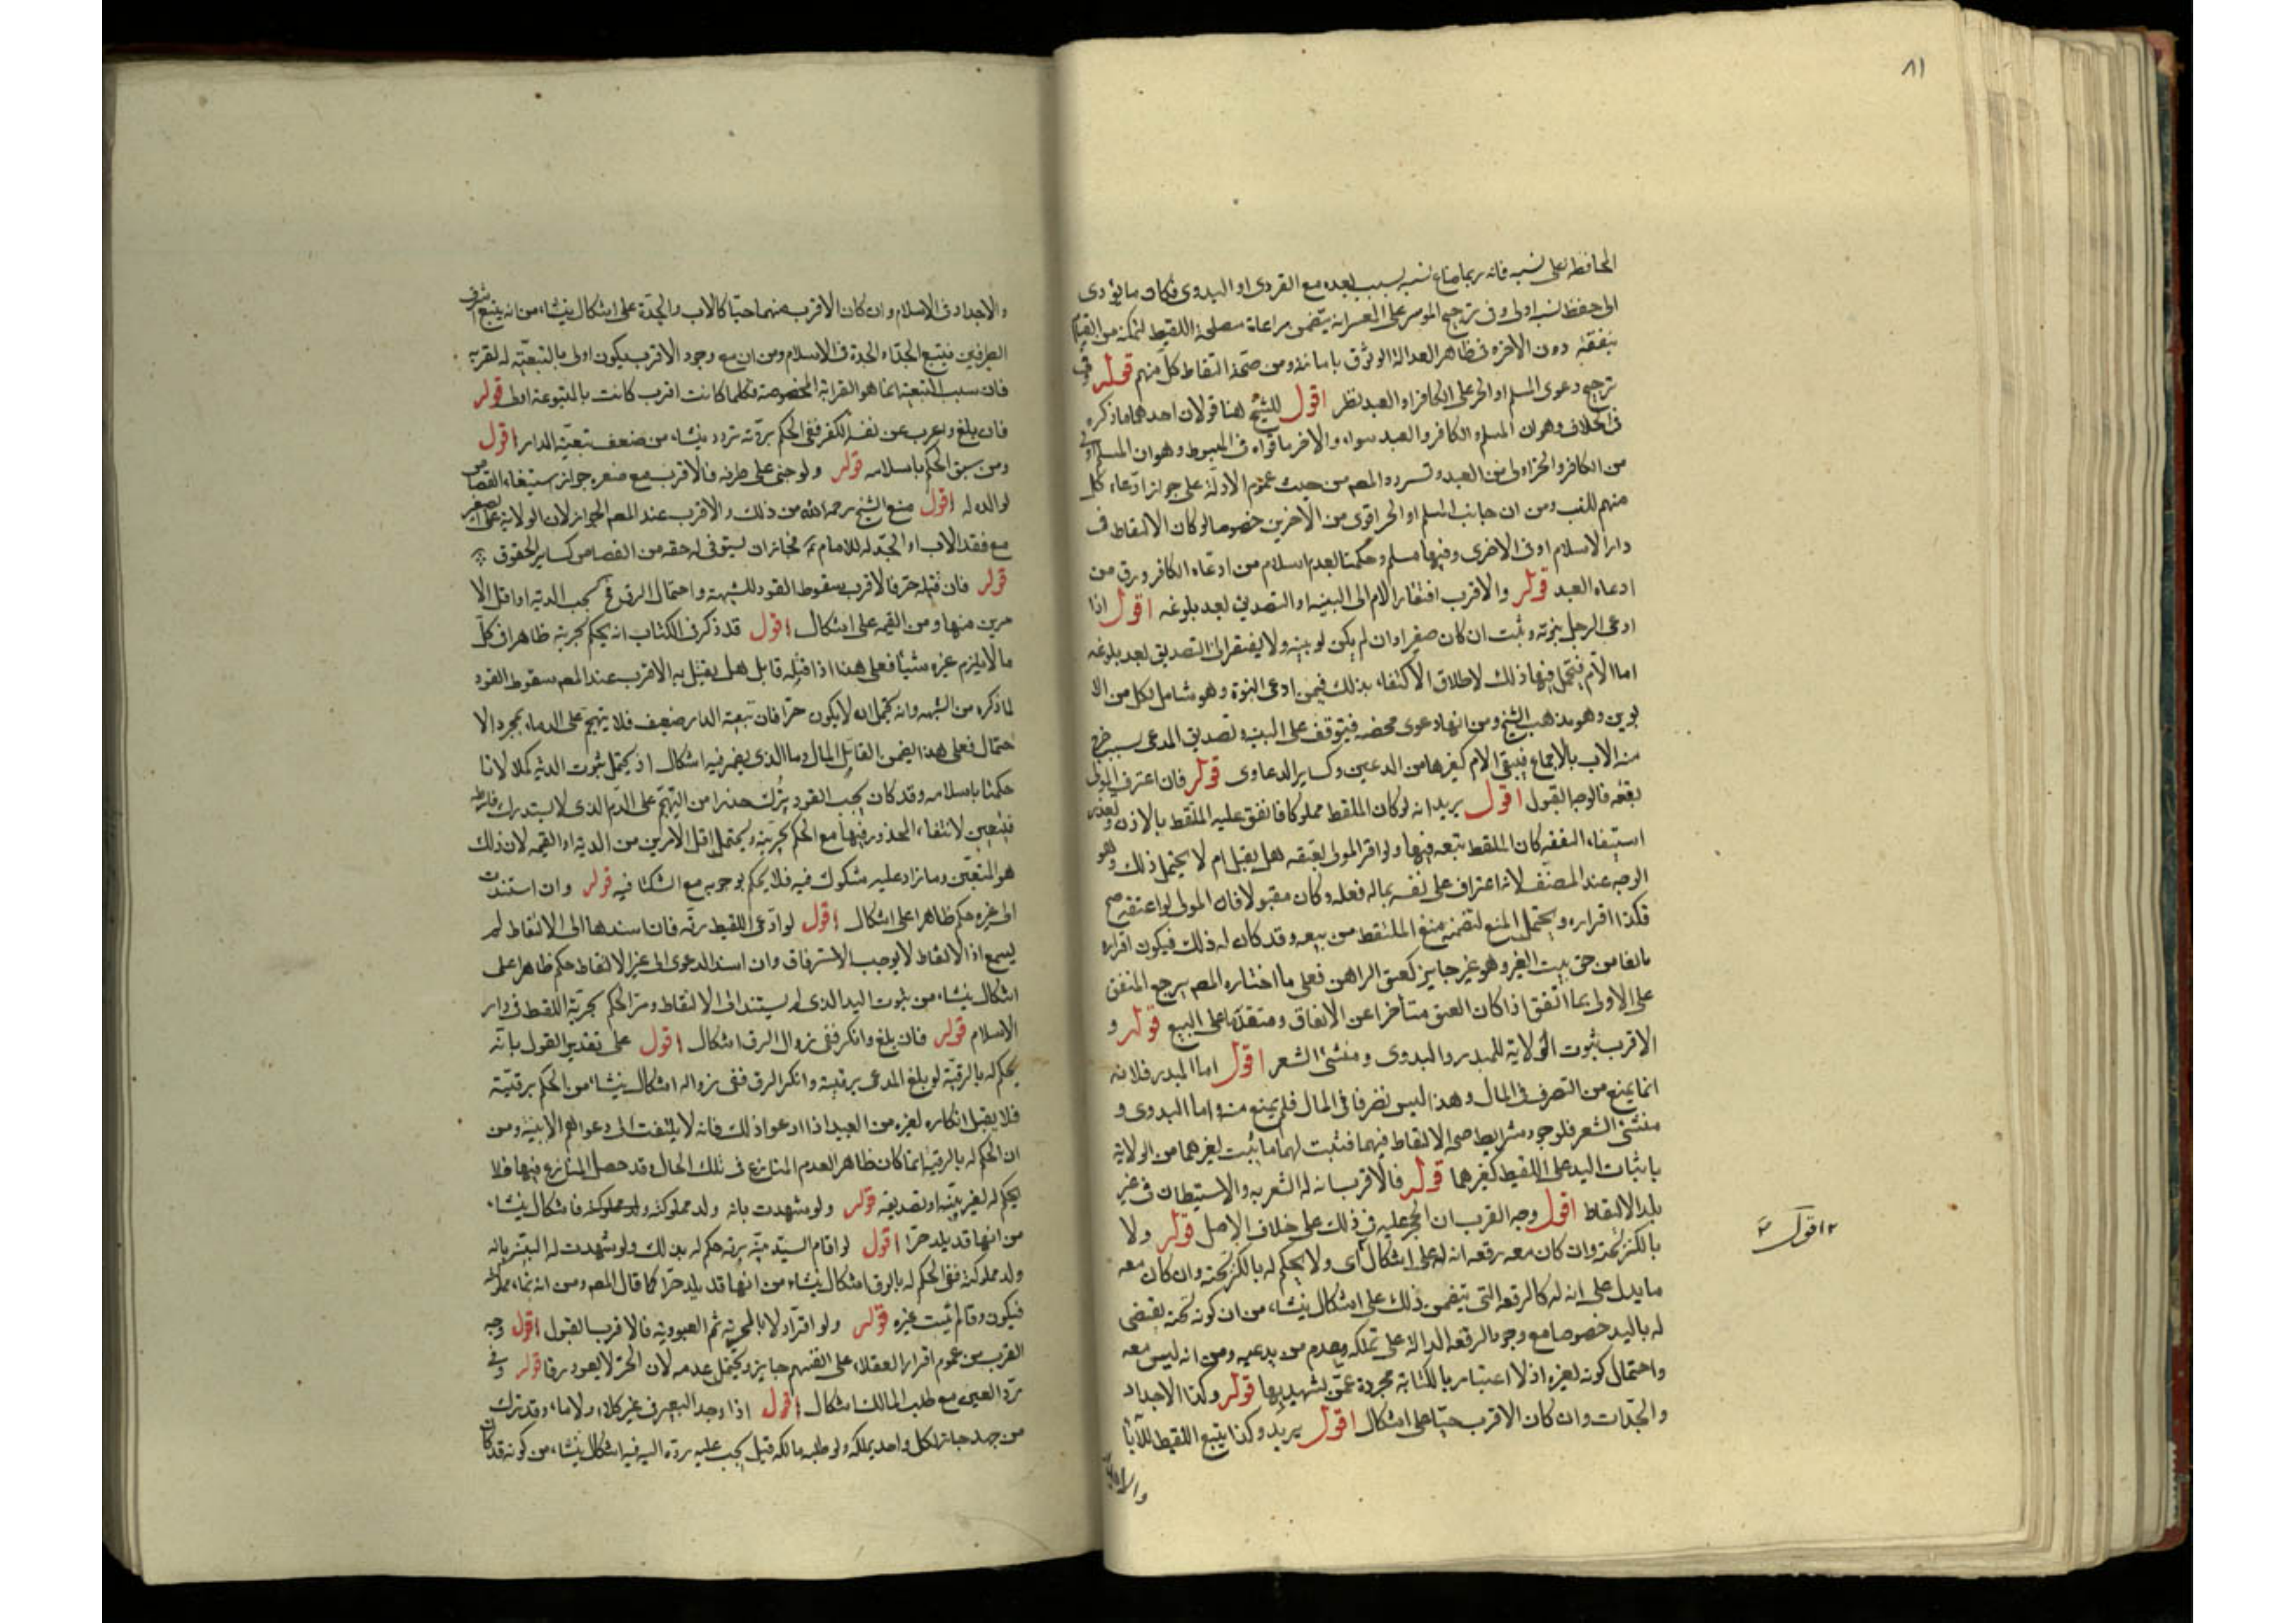 ٨١
المحافظه على نسبه فانه ربما ضاع نسبه بسبب بعده مع القروى او البدوى فكان ما يؤدى
الى حفظ نسبه اولى وفى ترجيح الموسر على المعسر انه يتضمن مراعاة مصلحة اللقيط لتمكنه من القيام
بنفقته دون الاخر فى ظاهر العدالة الوثوق بامانته ومن صحة التقاط كل منهم قوله وفى
ترجيح دعوى المسلم او الحر على الكافر او العبد نظر اقول للشيخ هنا قولان احدهما ما ذكره
فى الخلاف وهو ان المسلم والكافر والعبد سواء والاخر ما قواه فى المبسوط وهو ان المسلم اولى
من الكافر والحر اولى من العبد وتردد المصه من حيث عموم الادلة على جواز ادعاء كل
منهم للنسب ومن ان جانب المسلم او الحر اقوى من الاخرين خصوصا لو كان الالتقاط فى
دار الاسلام او فى الاخرى وفيها مسلم وحكمنا بعدم اسلام من ادعاه الكافر ورق من
ادعاه العبد قوله والاقرب افتقار الام الى البينه او التصديق بعد بلوغه اقول اذا
ادعى الرجل بنوته وثبت ان كان صغيرا وان لم يكن له بينه ولا يفتقر الى التصديق بعد بلوغه
اما الام فيحتمل فيها ذلك لاطلاق الاكتفاء بذلك فيمن ادعى البنوة وهو شامل لكل من الا
بوين وهو مذهب الشيخ ومن انها دعوى محضه فيتوقف على البينه وتصديق المدعى بسبب خرج
منه الاب بالاجماع فيبقى الام كغيرها من المدعين وكساير الدعاوى قوله فان اعترف المولى
بعتقه فالوجه القبول اقول يريد انه لو كان الملقط مملوكا فانفق عليه الملتقط بالاذن وتعذر
استيفاء النفقه كان للملتقط بيعه فيها ولو اقر المولى بعتقه هل يقبل ام لا يحتمل ذلك وهو
الوجه عند المصنف لانه اعتراف على نفسه بماله فعله وكان مقبولا فان المولى لو اعتقه صح
فكذا اقراره ويحتمل المنع لتضمنه منع الملتقط من بيعه وقد كان له ذلك فيكون اقراره
مانعا من حق يثبت الغير وهو غير جايز كعتق الراهن فعلى ما اختاره المصه يرجع المنفق
على المولى بما انفق اذا كان العتق متأخرا عن الانفاق ومتقدما على البيع قوله و
الاقرب ثبوت الولاية للمبذر والبدوى ومنشئ السفر اقول اما المبذر فلانه
انما يمنع من التصرف فى المال وهذا ليس تصرفا فى المال فلم يمنع منه واما البدوى و
منشئ السفر فلوجود شرايط صحة الالتقاط فيهما فثبت لهما ما يثبت لغيرهما من الولاية
باثبات اليد على اللقيط كغيرهما قوله فالاقرب انه له السفر به والاستيطان فى غير
بلد الالتقاط اقول وجه القرب ان الحجر عليه فى ذلك على خلاف الاصل قوله ولا
بالكنز تحته وان كان معه رقعه انه له على اشكال اى ولا يحكم له بالكنز تحته وان كان معه
ما يدل على انه له كالرقعه التى تتضمن ذلك على اشكال ينشاء من ان كونه تحته يقتضى
له باليد خصوصا مع وجود الرقعه الدالة على تملكه وعدم من يدعيه ومن انه ليس معه
واحتمال كونه لغيره اذ لا اعتبار بالكتابة مجردة عمن يشهد بها قوله وكذا الاجداد
والجدات وان كان الاقرب حيا على اشكال اقول يريد وكذا يتبع اللقيط للآبا
اقول
والاجداد فى الاسلام وان كان الاقرب منهما حيا كالاب والجدة على اشكال ينشاء من انه يتبع اشرف
الطرفين فيتبع الجد او الجدة فى الاسلام ومن ان مع وجود الاقرب يكون اولى بالتبعية له لقربه
فان سبب التبعية انما هو القرابة المخصوصة فكلما كانت اقرب كانت بالمتبوعة اولى قوله
فان بلغ واعرب عن نفسه الكفر ففى الحكم بردته تردد ينشاء من ضعف تبعية الدار اقول
ومن سبق الحكم باسلامه قوله ولو جنى على طرفه فالاقرب مع صغره جواز استيفاء القصاص
لوالده له اقول منع الشيخ رحمه الله من ذلك والاقرب عند المصه الجواز لان الولاية على الصغير
مع فقد الاب او الجد له للامام فجاز ان يستوفى له حقه من القصاص كساير الحقوق
قوله فان قتله حر فالاقرب سقوط القود للشبهة واحتمال الرق فح تجب الدية او اقل الا
مرين منها ومن القيمه على اشكال اقول قد ذكر فى الكتاب انه يحكم بحريته ظاهرا فى كل
ما لا يلزم غيره شيئا فعلى هذا اذا قتله قاتل هل يقتل به الاقرب عند المصه سقوط القود
لما ذكره من الشبهه وانه يحتمل ان لا يكون حرا فان تبعية الدار ضعيف فلا يتهجم على الدماء بمجرد الا
حتمال فعلى هذا يضمن القاتل المال وما الذى يضمن فيه اشكال اذ يحتمل ثبوت الدية كملا لانا
حكمنا باسلامه وقد كان يجب القود ترك حذرا من التهجم على الدم الذى لا يستدرك فارطه
فتتعين لانتفاء المحذور فيها مع الحكم بحريته ويحتمل اقل الامرين من الدية او القيمه لان ذلك
هو المتيقن وما زاد عليه مشكوك فيه فلا يحكم بوجوبه مع الشك فيه قوله وان استندت
الى غيره حكم ظاهرا على اشكال اقول لو ادعى اللقيط رقه فان اسندها الى الالتقاط لم
يسمع اذ الالتقاط لا يوجب الاسترقاق وان اسند الدعوى الى غير الالتقاط حكم ظاهرا على
اشكال ينشاء من ثبوت اليد الذى لم يستند الى الالتقاط ومن الحكم بحرية اللقيط فى دار
الاسلام قوله فان بلغ وانكر ففى زوال الرق اشكال اقول على تقدير القول بانه
يحكم له بالرقية لو بلغ المدعى برقيته وانكر الرق ففى زواله اشكال ينشاء من الحكم برقيته
فلا يقبل انكاره لغيره من العبيد اذا ادعوا ذلك فانه لا يلتفت الى دعواهم الا ببينة ومن
ان الحكم له بالرقية انما كان ظاهرا لعدم المنازع فى تلك الحال وقد حصل المنازع فيها فلا
يحكم له لغير بينه او تصديقه قوله ولو شهدت بانه ولد مملوكته فاشكال ينشاء
من انها قد يلد حرا اقول لو اقام السيد بينه برقه حكم له بذلك ولو شهدت له البينه بانه
ولد مملوكته ففى الحكم له بالرق اشكال ينشاء من انها قد يلد حرا كما قال المصه ومن انه نماء مملوكته
فيكون رقا لم يثبت غيره قوله ولو اقر اولا بالحرية ثم العبودية فالاقرب القبول اقول وجه
القرب من عموم اقرار العقلاء على انفسهم جايز ويحتمل عدمه لان الحر لا يعود رقا قوله وفى
رد العين مع طلب المالك اشكال اقول اذا وجد البعير فى غير كلاء ولا ماء وقد ترك
من جهد جاز لكل واحد يملكه ولو طلبه مالكه قيل يجب عليه رده اليه فيه اشكال ينشاء من كونه قد كان